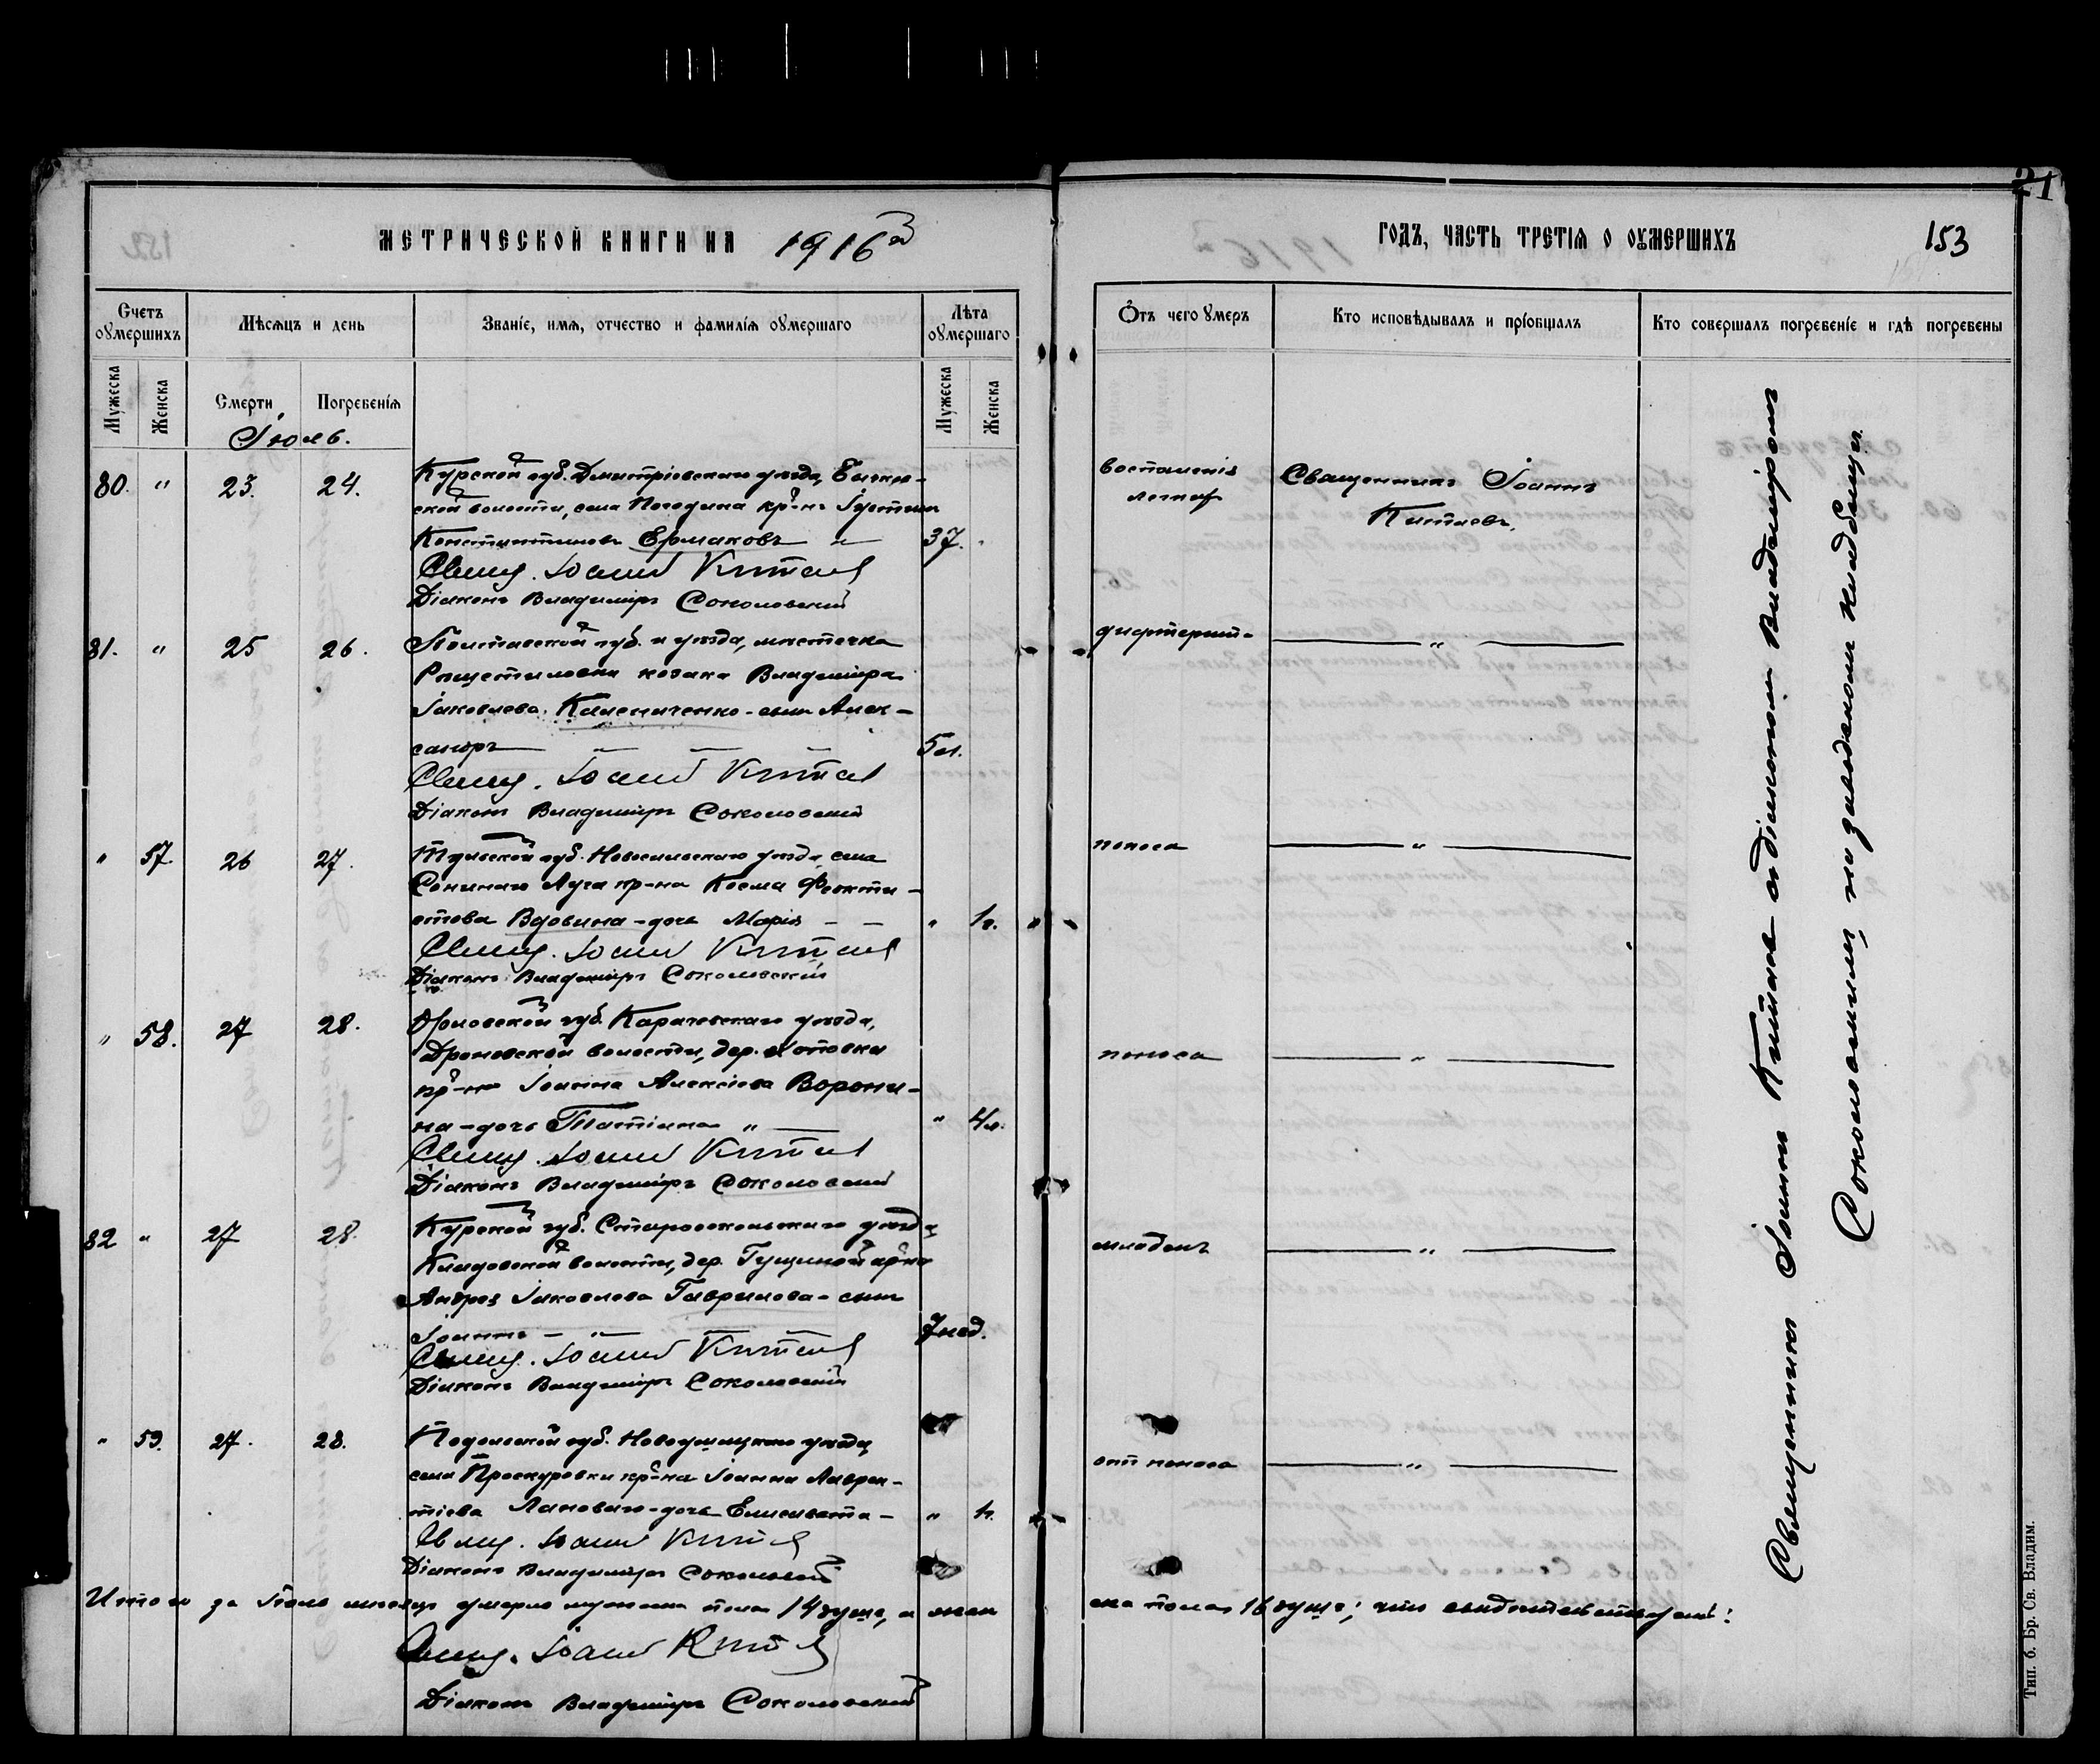 21
МЕТРИЧЕСКОЙ КНИГИ НА 1916й
ГОДЪ, ЧАСТЬ ТРЕТІЯ О ОУМЕРШИХЪ 153
Счетъ оумершихъ
Мѣсяцъ и день
Званіе, имя, отчество и фамилія оумершаго
Лѣта оумершаго
Отъ чего умеръ
Кто исповѣдывалъ и пріобщалъ
Кто совершалъ погребеніе и гдѣ погребены
Мужеска
Женска
Смерти
Погребенія
Мужеска
Женска
Іюль.
80. " 23. 24. Курской губ. Дмитріевскаго уѣзда,
ской волости, села Погодина кр-нъ Іустинъ
Константиновъ Ермаковъ " 37.
воспаленія
легкихъ
Священникъ Іоаннъ
Китаевъ.
Свящ. Іоаннъ Китаевъ
Діаконъ Владиміръ Соколовскій
81. " 25 26. Полтавской губ. и уѣзда, мѣстечка
Рѣшетиловки козака Владиміра
Іаковлева Калениченко - сынъ Алек-
сандръ 5 л.
дифтерит-
"
Свящ. Іоаннъ Китаевъ
Діаконъ Владиміръ Соколовскій
" 57. 26 27. Тульской губ. Новосильскаго уѣзда, села
Сенинаго Луга кр-на Косма Феокти-
стова Вдовина - дочь Марія " 1 г.
поноса "
Свящ. Іоаннъ Китаевъ
Діаконъ Владиміръ Соколовскій
" 58. 27 28. Орловской губ. Карачевскаго уѣзда,
Дроновской волости, дер. Хотовки
кр-на Іоанна Алексіева Ворони-
на - дочь Татіана " " 4 л.
поноса "
Свящ. Іоаннъ Китаевъ
Діаконъ Владиміръ Соколовскій
82 " 27 28. Курской губ. Старооскольскаго уѣзда
Кладовской волости, дер. Гущиной кр-на
Андрея Іаковлева Гаврилова - сынъ
Іоаннъ " 7 нед.
младен. "
Свящ. Іоаннъ Китаевъ
Діаконъ Владиміръ Соколовскій
" 59. 27. 28. Подольской губ. Новоушицкаго уѣзда,
села Проскуровки кр-на Іоанна Лаврен-
тіева Лановаго - дочь Елисавета - " 1 г.
отъ поноса "
Свящ. Іоаннъ Китаевъ
Діаконъ Владиміръ Соколовскій
Итого за Іюль мѣсяцъ умерло мужеска пола 14 душъ, а жен
ска пола 16 душъ; что свидѣтельствуемъ:
Свящ. Іоаннъ Китаевъ
Діаконъ Владиміръ Соколовскій
Священникъ Іоаннъ Китаевъ съ діакономъ Владиміромъ
Соколовскимъ, на заводскомъ кладбищѣ.
Тип. б. Бр. Св. Владим.